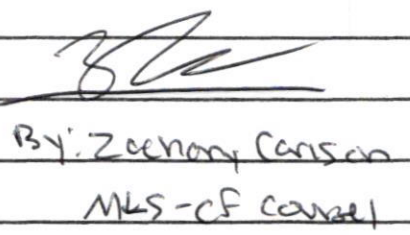 By: Zachary Carlson
MKS-CF Counsel